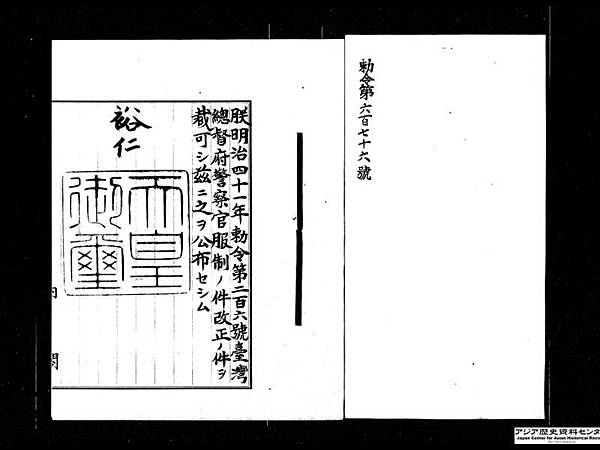 勅令第六百七十六號
朕明治四十一年勅令第二百六號臺灣
總督府警察官服制ノ件改正ノ件ヲ
裁可シ茲ニ之ヲ公布セシム
裕仁
天皇
御璽
内
閣
アジア歴史資料センタ
Japan Center for Asian Historical Reco